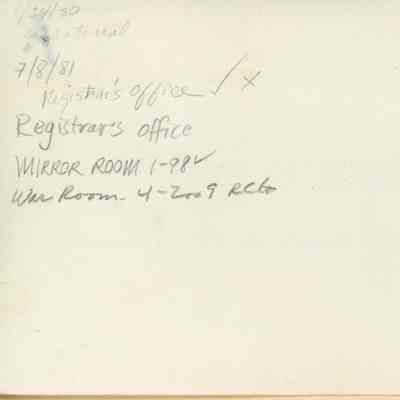 1/30/80
7/8/81
Registrar's office ✓ X
Registrar's office
MIRROR ROOM 1-98 ✓
War Room - 4-2009